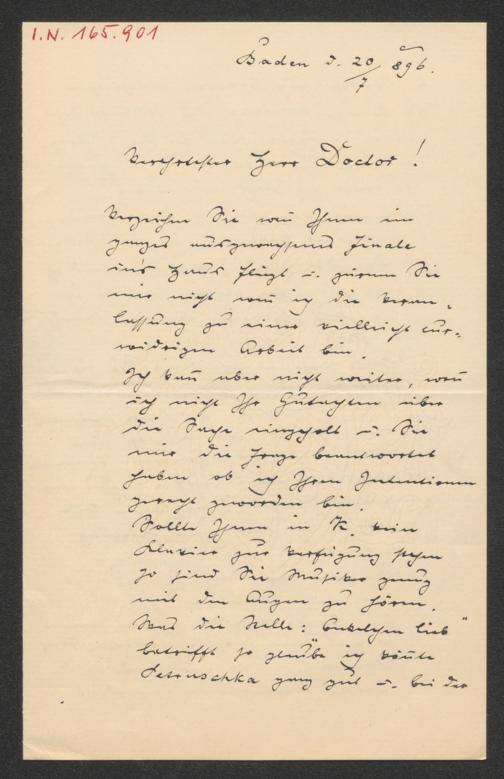 I.N. 165.901
Baden d. 20/7 896.
Verehrtester Herr Doctor!
Verzeihen Sie wen̄ Ihnen ein
ganzes ausgewachsenes Finale
in's Haus fliegt u. zürnen Sie
mir nicht wen̄ ich die Veran-
lassung zu einer vielleicht cur-
widrigen Arbeit bin.
Ich kan̄ aber nicht weiter, wen̄
ich nicht Ihr Gutachten über
die Sache eingeholt u. Sie
mir die Frage beantwortet
haben ob ich Ihren Intentionen
gerecht geworden bin.
Sollte Ihnen in K. kein
Klavier zur Verfügung stehen
so sind Sie Musiker genug
mit den Augen zu hören.
Was die Stelle: lieb"
betrifft so glaube ich könnte
Petruschka ganz gut u. bei der